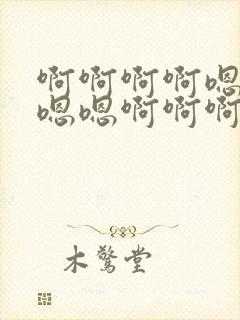 啊啊啊啊嗯
嗯嗯啊啊啊
木驚堂